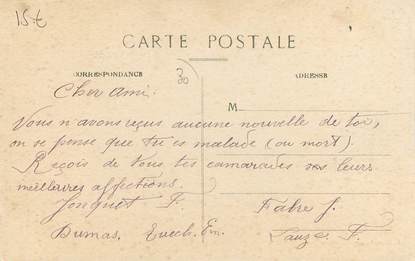 15€
CARTE POSTALE
CORRESPONDANCE
30
ADRESSE
M
Cher ami.
Vous n'avons reçus aucune nouvelle de toi,
on se pense que tu es malade (ou mort).
Reçois de tous tes camarades leurs
meilleures affections.
Jonquet F. Fabre J.
Dumas, Em. F.